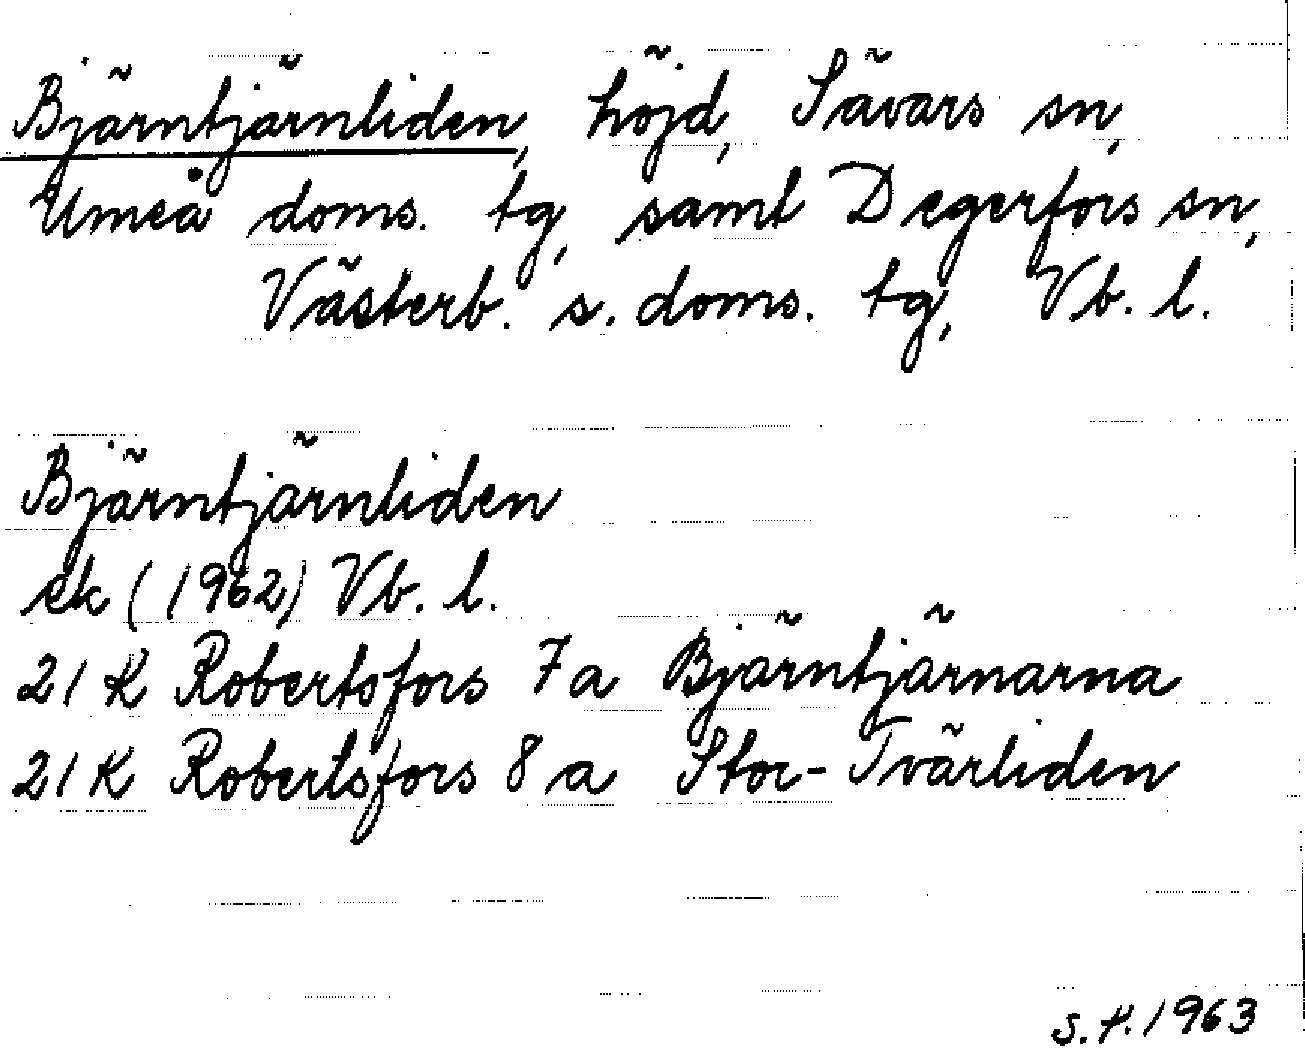 Bjärntjärnliden, höjd, Sävars sn,
Umeå doms. tg, samt Degerfors sn,
Västerb. s. doms. tg, Vb. l.
Bjärntjärnliden
ek (1962) Vb. l.
21 K Robertsfors 7a Bjärntjärnarna
21 K Robertsfors 8a Stor-Tvärliden
S.H. 1963